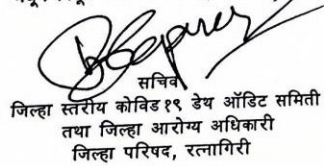 सचिव
जिल्हा स्तरीय कोविड १९ डेथ ऑडिट समिती
तथा जिल्हा आरोग्य अधिकारी
जिल्हा परिषद, रत्नागिरी